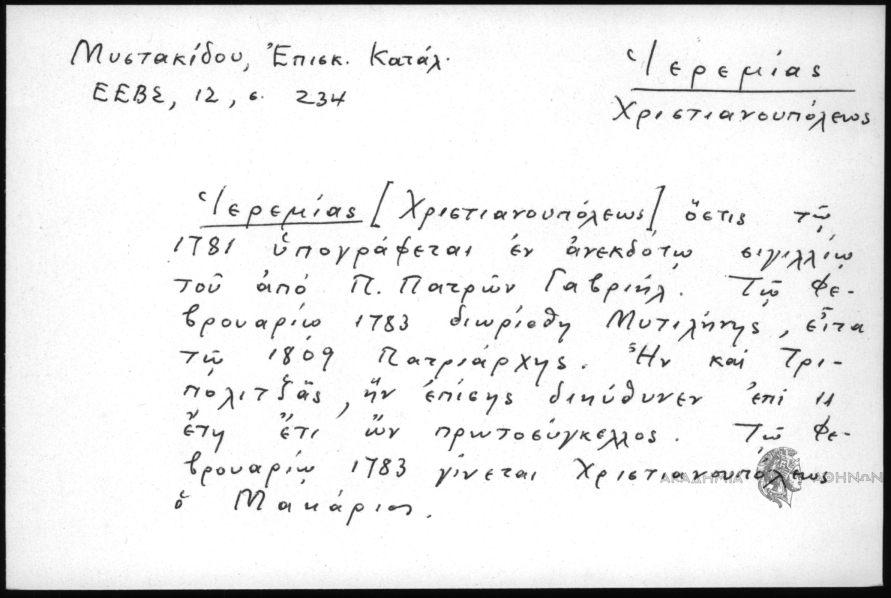 Μυστακίδου, Ἐπισκ. Κατάλ.
ΕΕΒΣ, 12, σ. 234
Ἱερεμίας
Χριστιανουπόλεως
Ἱερεμίας [Χριστιανουπόλεως] ὅστις τῷ
1781 ὑπογράφεται ἐν ἀνεκδότῳ σιγιλλίῳ
τοῦ ἀπό Π. Πατρῶν Γαβριήλ. Τῷ Φε-
βρουαρίῳ 1783 διωρίσθη Μυτιλήνης, εἶτα
τῷ 1809 Πατριάρχης. Ἦν καί Τρι-
πολιτζᾶς, ἥν ἐπίσης διηύθυνεν ἐπί 11
ἔτη ἔτι ὤν πρωτοσύγκελλος. Τῷ Φε-
βρουαρίῳ 1783 γίνεται Χριστιανουπόλεως
ὁ Μακάριος.
ΑΚΑΔΗΜΙΑ ΑΘΗΝΩΝ